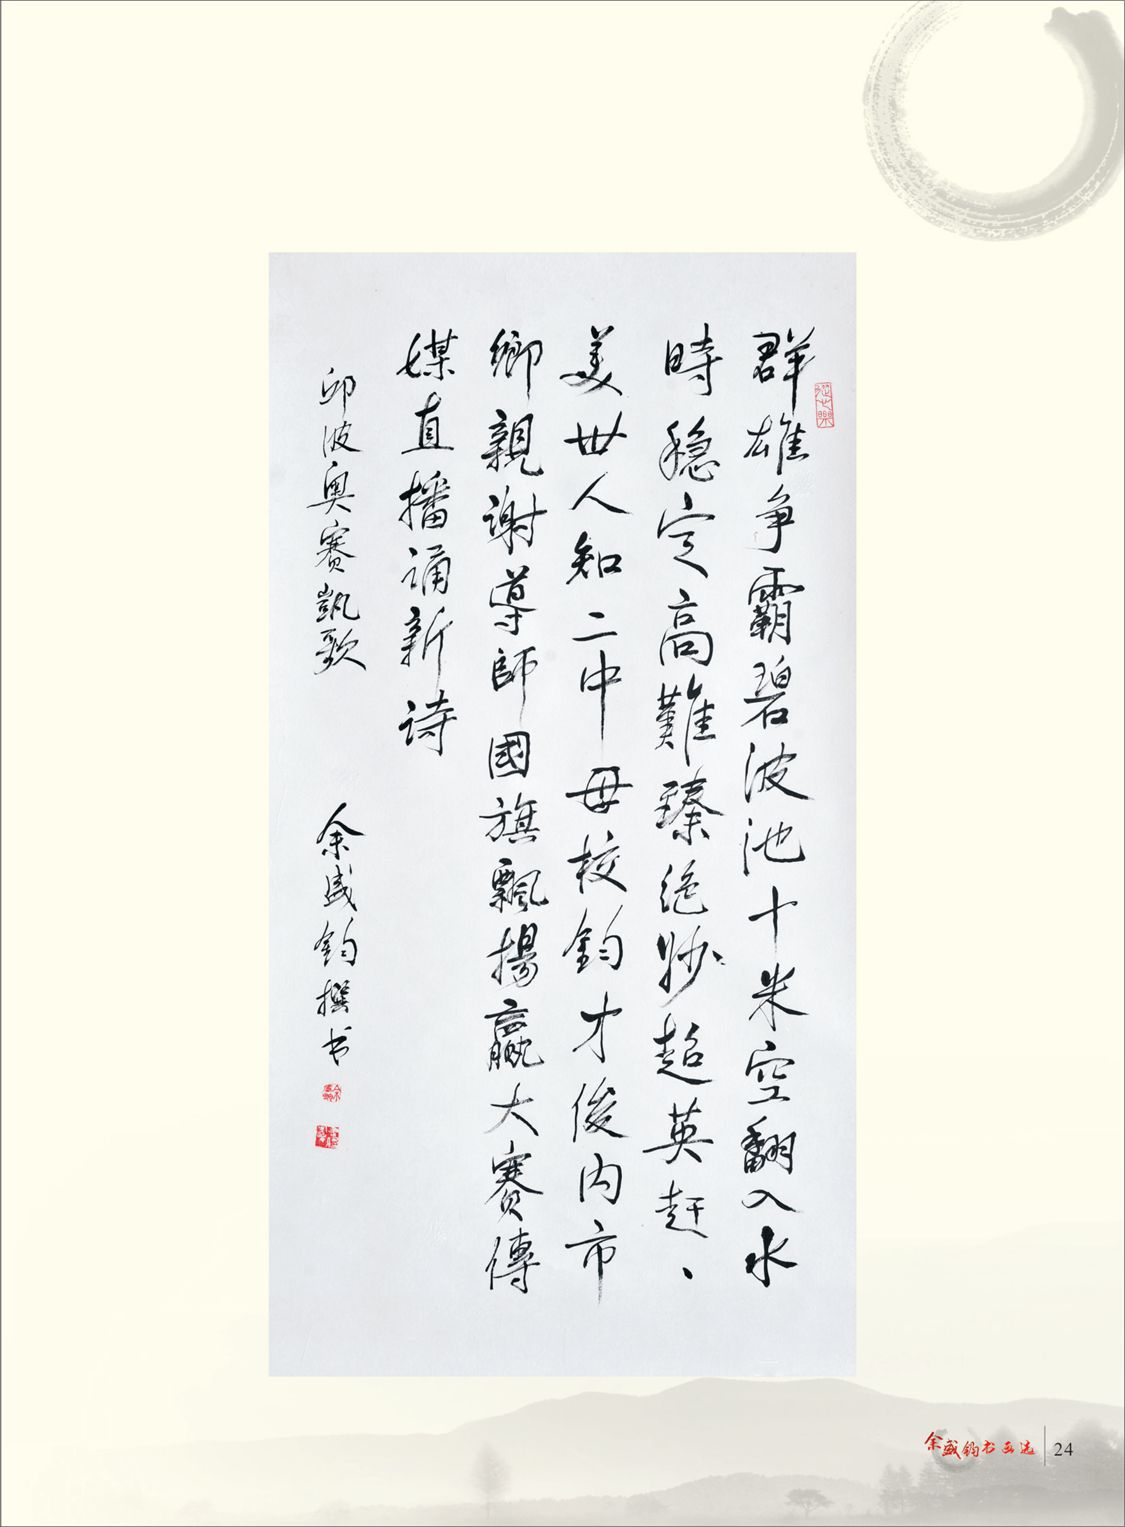 群雄争霸碧波池十米空翻入水
時稳定高難臻绝妙超英赶、
美世人知二中母校鈞才俊内市
鄉親謝導師國旗飄揚贏大赛傳
媒直播诵新诗
邱波奥赛凱歌
余盛鈞撰书
余盛鈞书画选
24